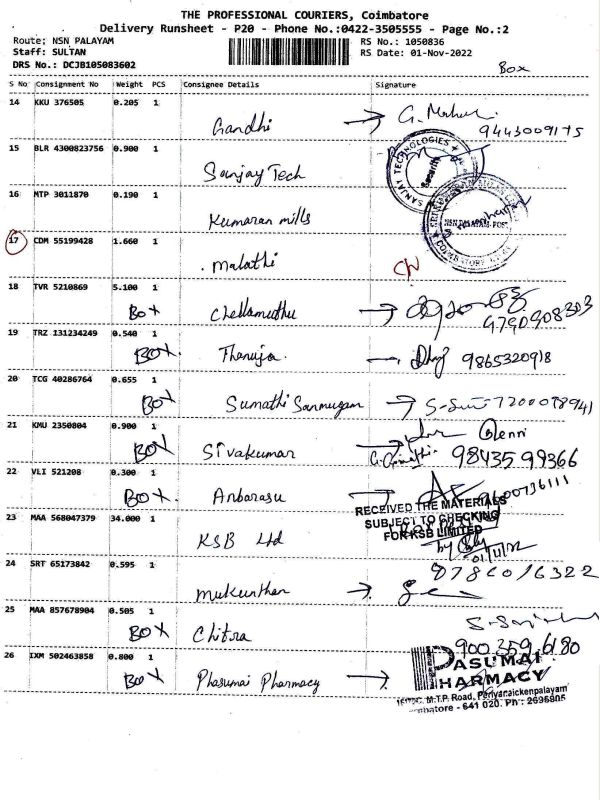 THE PROFESSIONAL COURIERS, Coimbatore
Delivery Runsheet - P20 - Phone No.:0422-3505555 - Page No.:2
Route: NSN PALAYAM
RS No.: 1050836
Staff: SULTAN
RS Date: 01-Nov-2022
DRS No.: DCJB105083602
Box
S No Consignment No Weight PCS Consignee Details Signature
14 KKU 376505 0.205 1
Gandhi → G.
9443009175
15 BLR 4300823756 0.900 1
Sanjay Tech
SANJAY TECHNOLOGIES
Security
16 MTP 3011870 0.190 1
Kumaran mills
NSN PALAYAM POST
17 CDM 55199428 1.660 1
. Malathi
18 TVR 5210869 5.100 1
BOX Chellamuthu →
9790908303
19 TRZ 131234249 0.540 1
BOX. Thanuja. 9865320918
20 TCG 40286764 0.655 1
BOX Sumathi Sanmugam →
21 KMU 2350804 0.900 1
BOX Sivakumar 98435 99366
22 VLI 521208 0.300 1
BOX. Anbarasu →
RECEIVED THE MATERIALS
SUBJECT TO CHECKING
FOR KSB LIMITED
23 MAA 568047379 34.000 1
KSB Ltd
by
01/11/22
24 SRT 65173842 0.595 1
Mukunthan →
25 MAA 857678904 0.505 1
BOX Chitra
900 359 6180
26 IXM 502463858 0.800 1
BOX Phasumai Pharmacy →
PASUMAI
PHARMACY
M.T.P. Road, Periyanaickenpalayam
Coimbatore - 641 020. Ph : 2696905